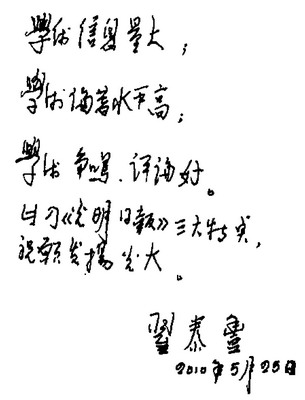 學术信息量大；
學术论著水平高；
學术争鸣、评论好。
此乃《光明日報》三大特點，
祝願发揚光大。
翟泰豐
2010年5月25日